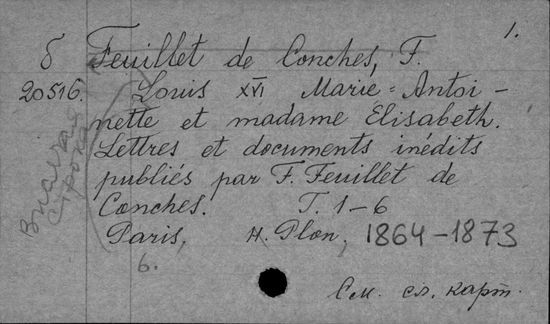 1.
б Feuillet de Conches, F.
20516. Louis XVI Marie-Antoi-
nette et madame Elisabeth.
Lettres et documents inédits
publiés par F. Feuillet de
Conches. T. 1-6
Paris, H. Plon, 1864-1873
6.
См. сл. карт.
строка